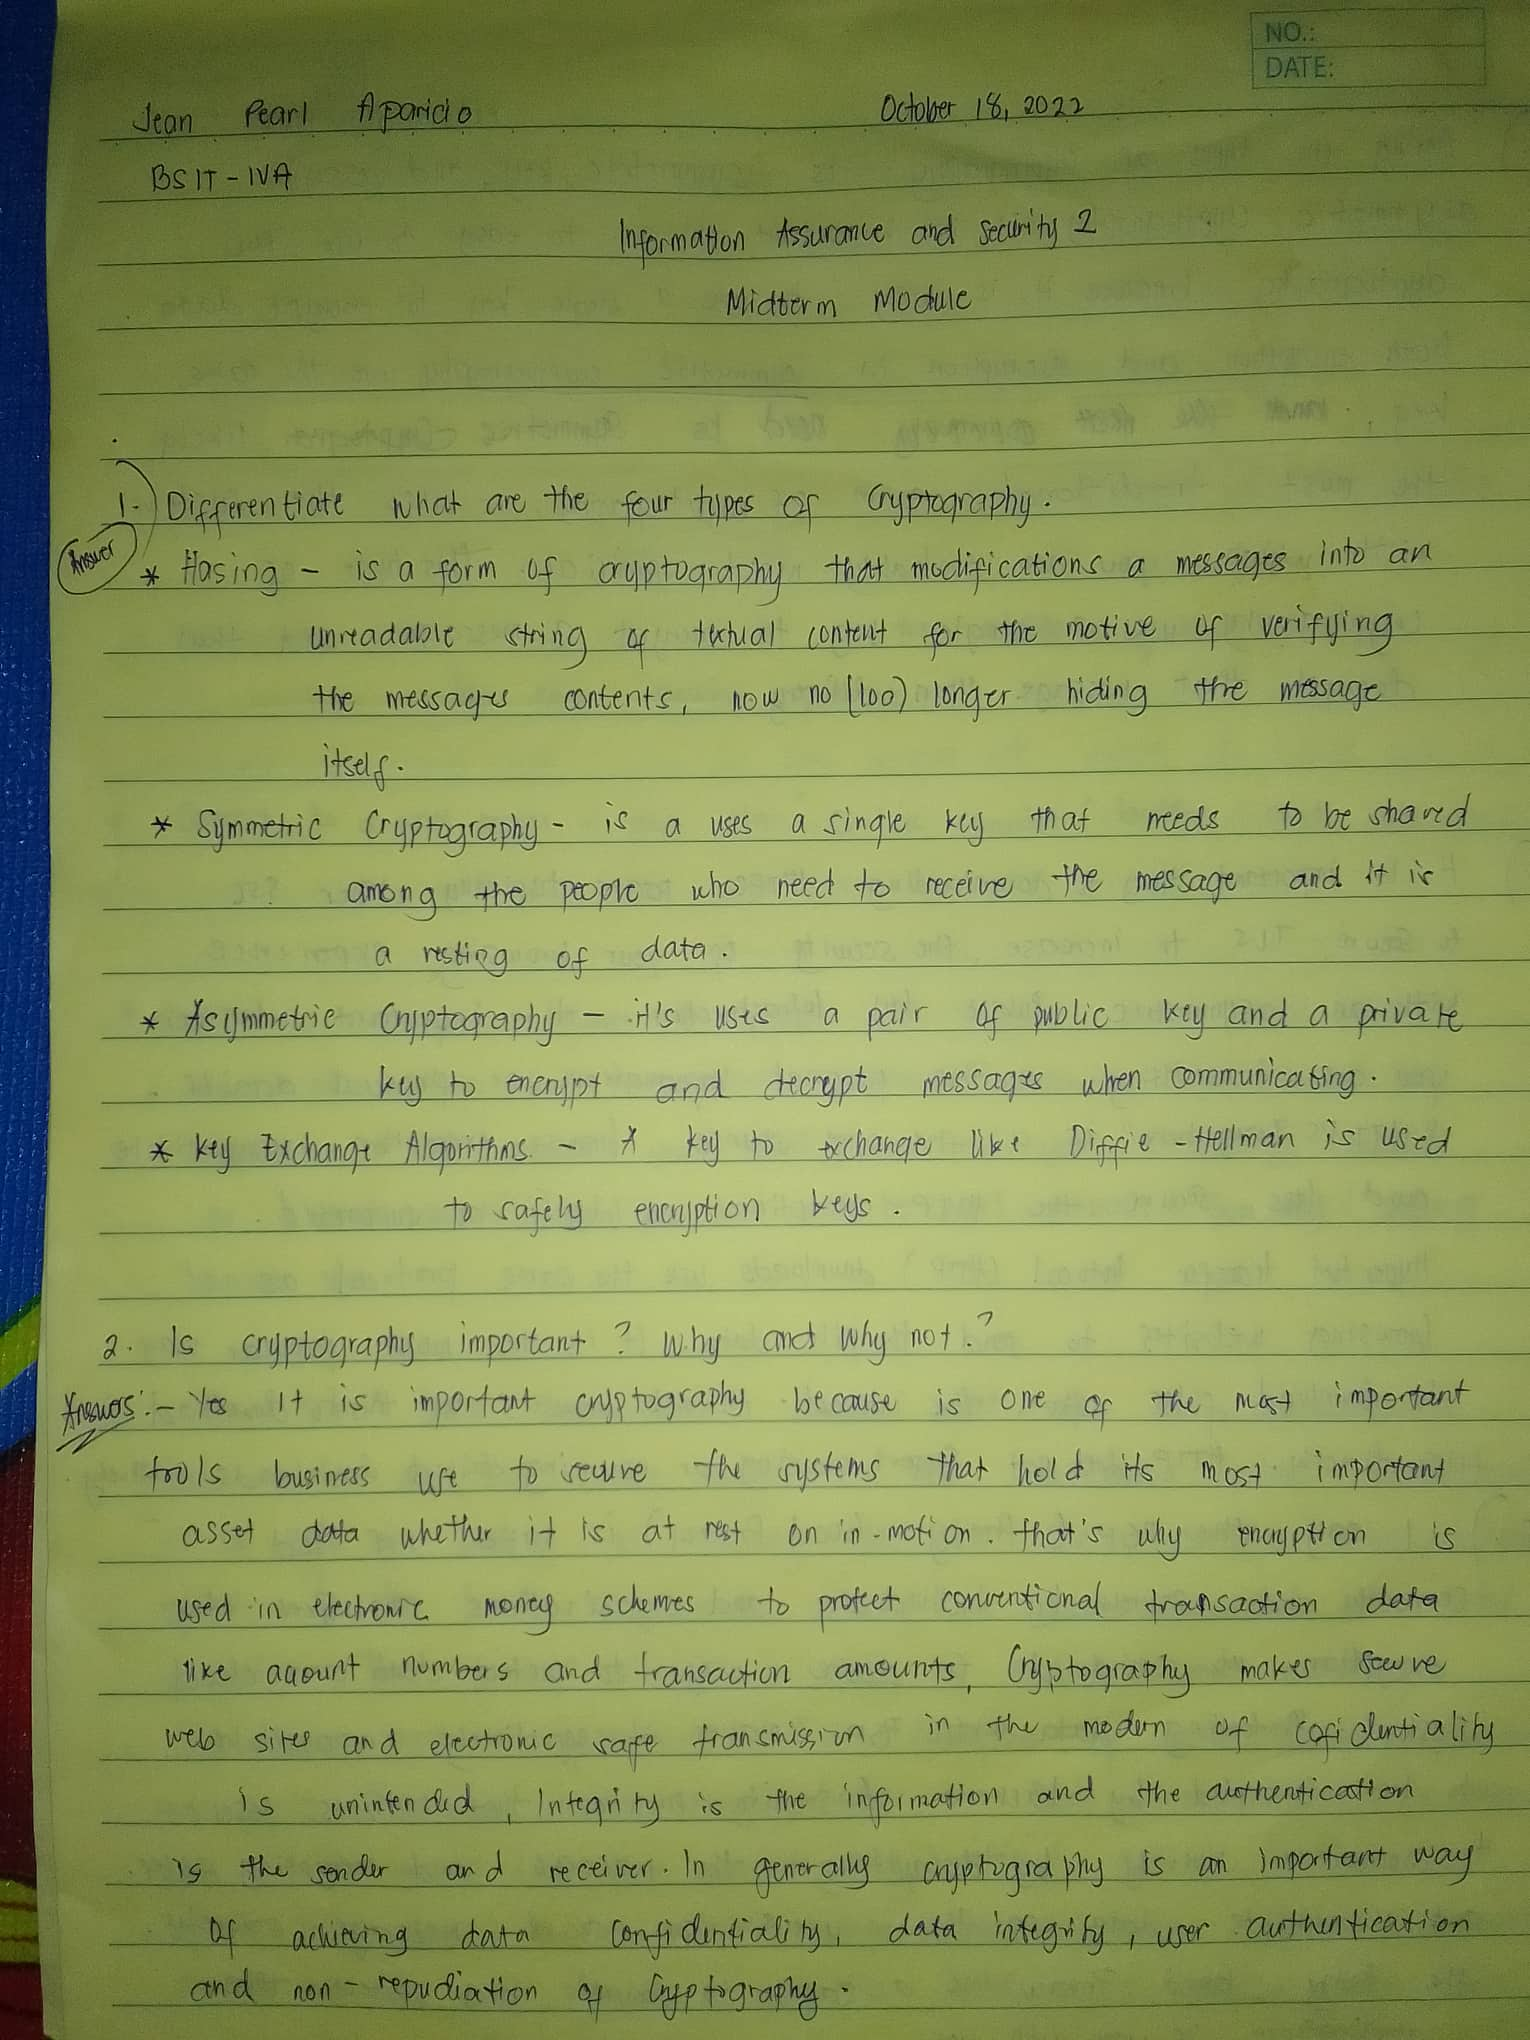 NO.:
DATE:
Jean Pearl Aparicio October 18, 2022
BSIT - IVA
Information Assurance and Security 2
Midterm Module
1. Differentiate what are the four types of Cryptography.
Answer
* Hasing - is a form of cryptography that modifications a messages into an
unreadable string of textual content for the motive of verifying
the messages contents, now no (loo) longer hiding the message
itself.
* Symmetric Cryptography - is a uses a single key that needs to be shared
among the people who need to receive the message and it is
a resting of data.
* Asymmetric Cryptography - it's uses a pair of public key and a private
key to encrypt and decrypt messages when communicating.
* Key Exchange Algorithms - A key to exchange like Diffie - Hellman is used
to safely encryption keys.
2. Is cryptography important? Why and why not.?
Answers: - Yes It is important cryptography because is one of the most important
tools business use to secure the systems that hold its most important
asset data whether it is at rest on in-motion. that's why encryption is
used in electronic money schemes to protect conventional transaction data
like account numbers and transaction amounts, Cryptography makes secure
web sites and electronic safe transmission in the modern of cofidentiality
is unintended, Integrity is the information and the authentication
is the sender and receiver. In generally cryptography is an important way
of achieving data confidentiality, data integrity, user authentication
and non-repudiation of Cryptography.